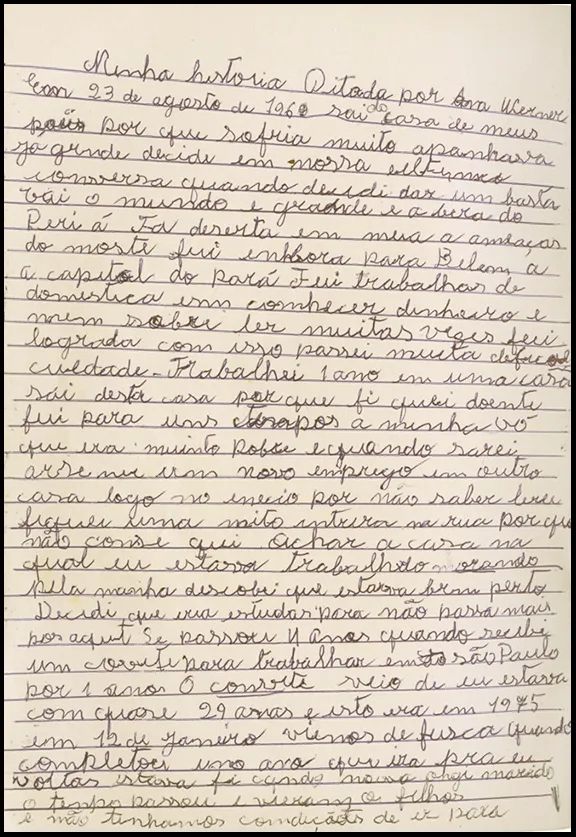 Minha historia Ditada por Ana Werner
Em 23 de agosto de 196 sai do casa de meus
pais por que sofria muito apanhava
ja grnde decide em nossa
conversa quando decidi dar um basta
vai o mundo e grande e a
Peri á Fa deserta em meu a ameaças
do morte fui embora para Belem a
a capital do Pará Fui trabalhar de
domestica enm comhecer dinheiro e
nem sabei ler muitas vezes fui
lograda com isso passei muita
cuedade - Trabalhei 1 ano em uma casa
sai desta casa por que fi quei doente
fui para uns tempos a minha vó
que era muinto Pobre e quando sarei
arse nei um novo emprego em outro
casa logo no enecio por não saber lereu
fiquei uma noite inteira na rua por que
não conse qui achar a casa na
qual eu estava trabalhdo morando
Pela manha descobei que estava bem perto
Decidi que iria estudar para não passa mais
por aquit Se passou 4 Anos quando recibi
um covite para trabalhar em são Paulo
por 1 ano. O convite veio de eu estava
com quase 29 anas e isto era em 1975
em 12 de janeiro viemos de fusca quando
completou uno ano que ira pra eu
voltas estava fi cando noiva ohgi marido
o tempo passou e vieram o filhos
e não tinhamos condições de ir para